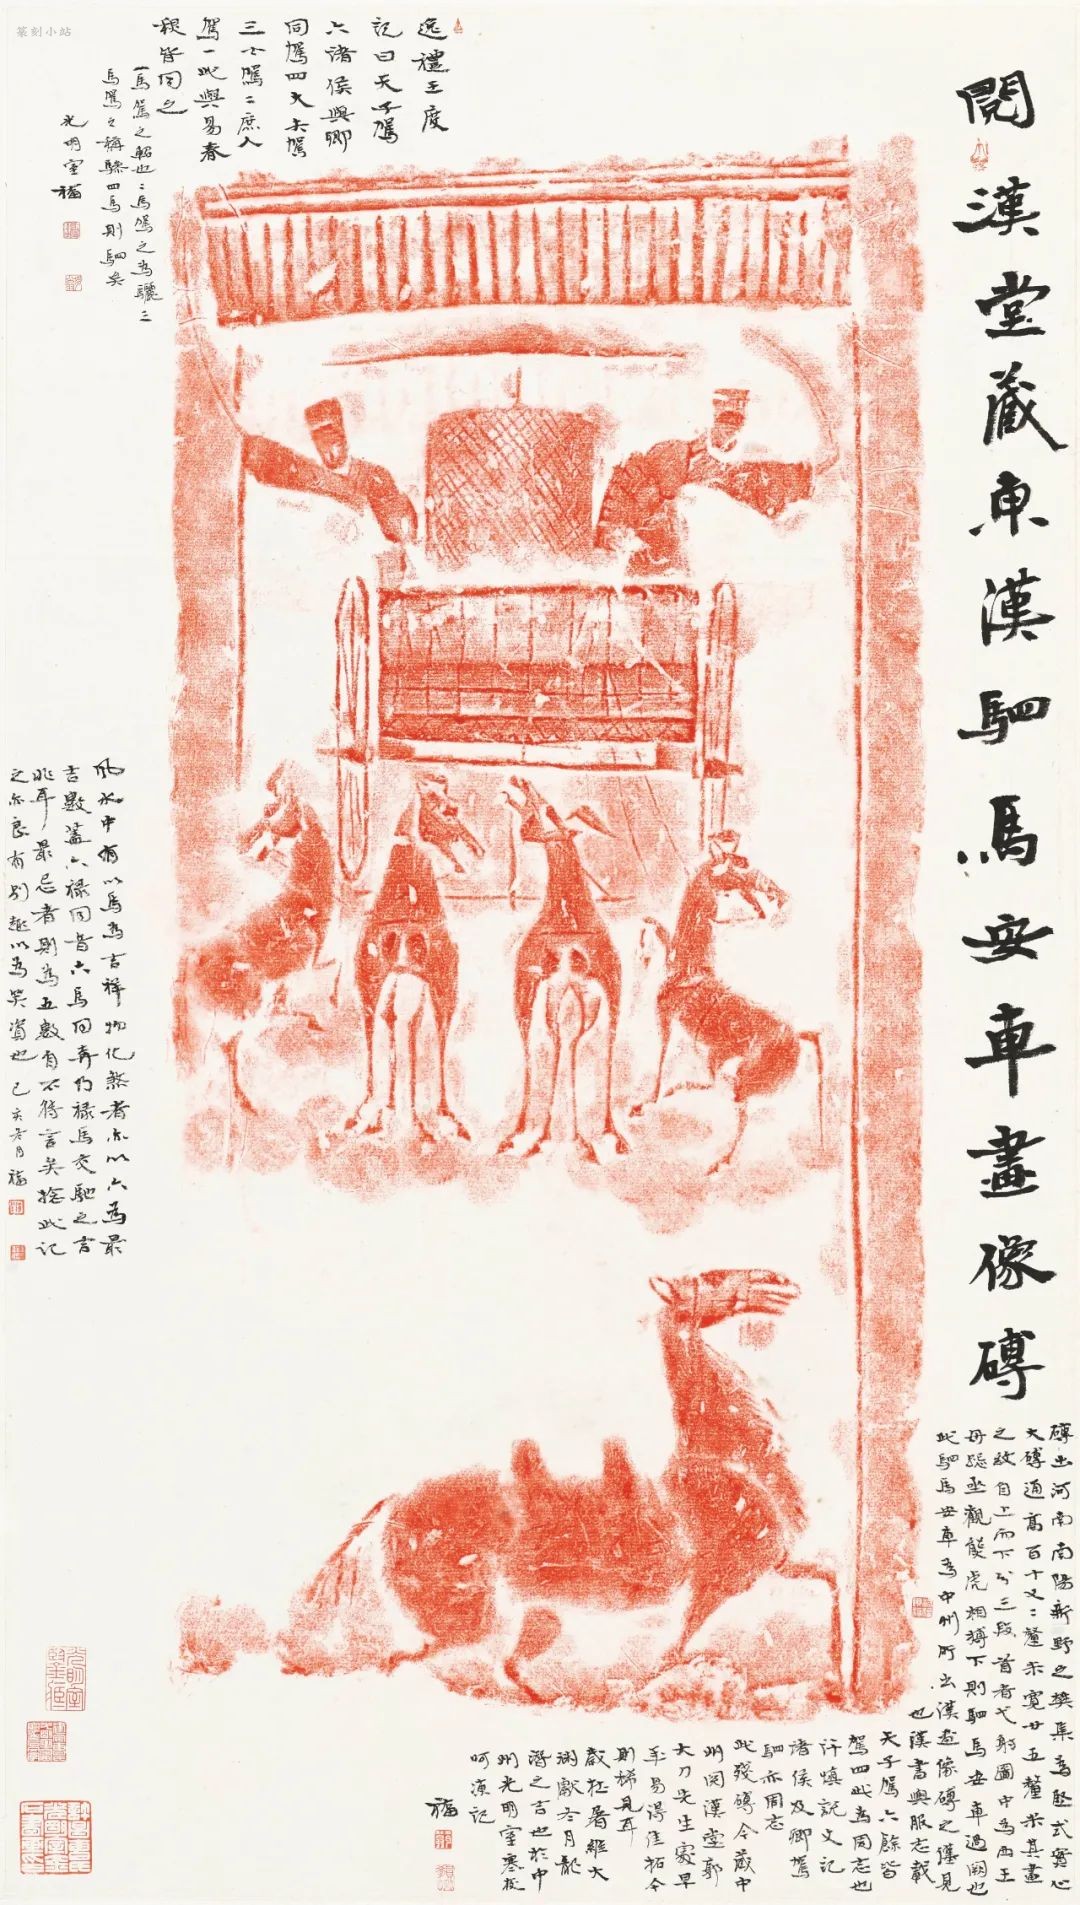 閱漢堂藏東漢駟馬安車畫像磚
磚出河南南陽新野之樊集為墜式實心
大磚通高百十又二釐米寬廿五釐米其畫
之紋自上而下分三段首者弋射圖中為西王
母端坐觀熊虎相搏下則駟馬安車過闕也
此駟馬安車為中州所出漢畫像磚之僅見
也漢書輿服志載
天子駕六餘皆
駕四此為同志也
許慎說文記
諸侯及卿駕
駟亦同志
此殘磚今藏中
州閱漢堂郭
大刀先生處早
年易得佳拓今
則稀見耳
歲在屠維大
淵獻冬月龍
潛之吉也於中
州光明室寒夜
呵凍記
福
逸禮王度
記曰天子駕
六諸侯與卿
同駕四大夫駕
三士駕二庶人
駕一此與易春
秋皆同之
一馬駕之軺也二馬駕之為驪三
馬駕之稱驂四馬則駟矣
光明室福
風水中有以馬為吉祥物化煞者亦以六為最
吉數蓋六祿同音六馬同奔乃祿馬交馳之吉
兆耳最忌者則為五數自不待言矣捻此記
之亦良有別趣以為笑資也己亥冬月福
篆刻小站